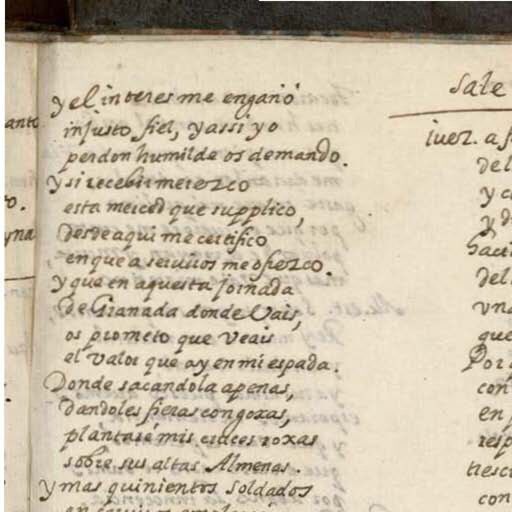 y el interes me engañó
injusto fiel, y assi yo
perdon humilde os demando.
y si recebir merezco
esta merced que supplico,
Desde aqui me certifico
en que a seruiros me ofrezco.
y que en aquesta jornada
de Granada donde Vais,
os prometo que Veais
el Valor que ay en mi espada.
Donde sacandola apenas,
dandoles fieras congoxas,
plantaré mis cruces roxas
sobre sus altas Almenas.
y mas quinientos soldados
Sale
iuez. a
del
y
y
del
vna
que
Por
con
en
con